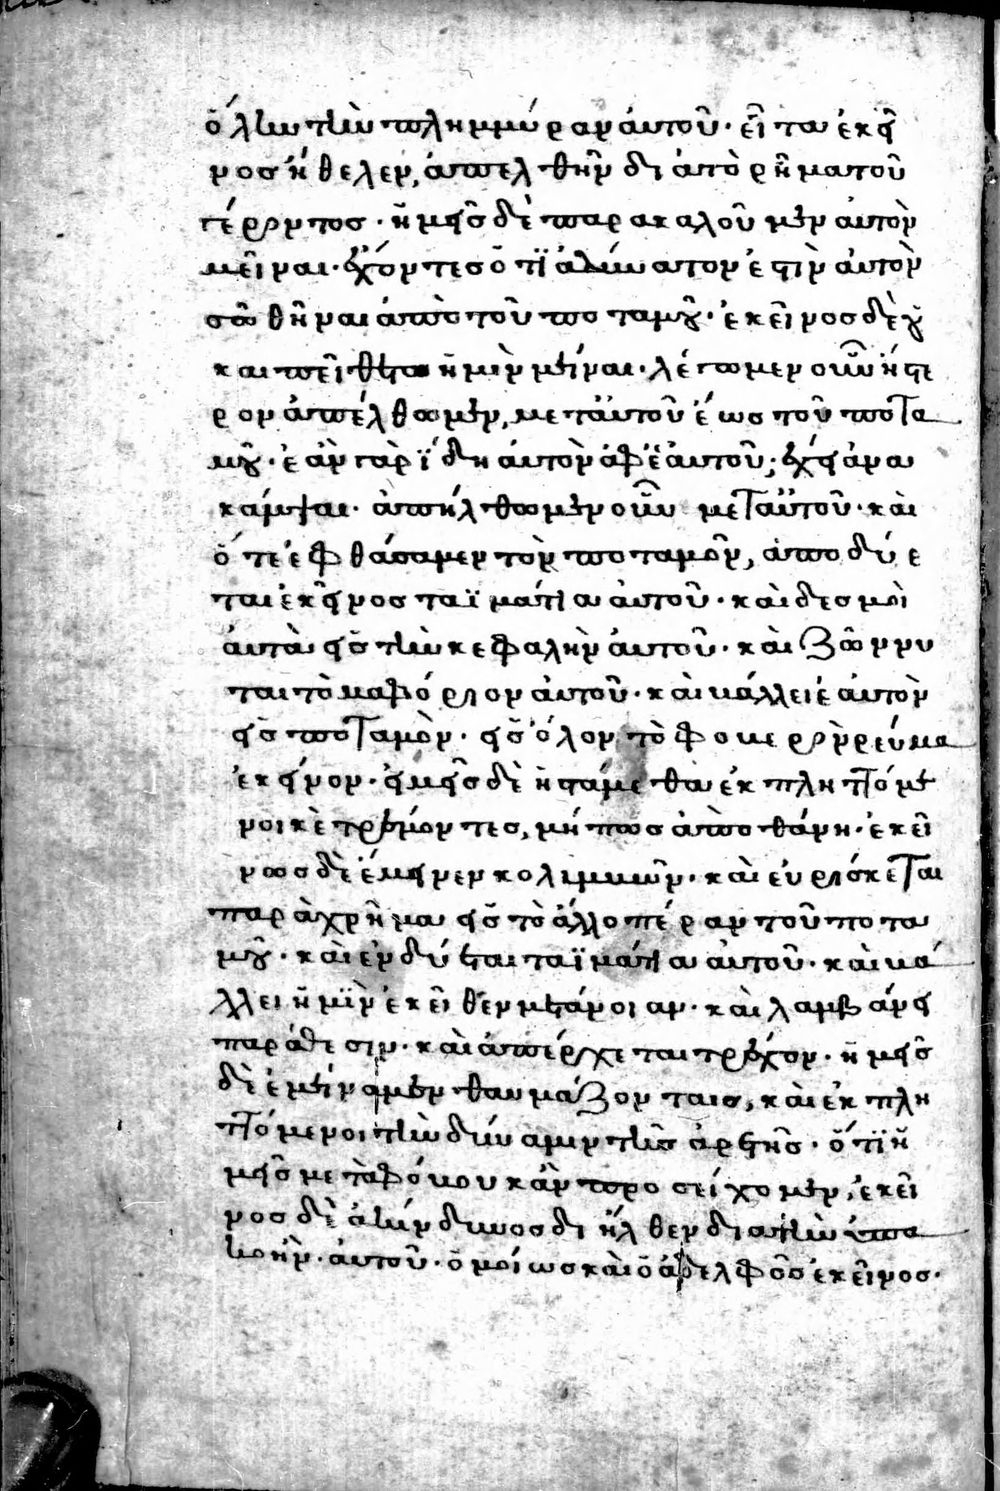 ὅλην τὴν πλημμύραν αὐτοῦ· εἶτα ἐκεῖ
νος ἤθελεν, ἀπελθῆν δι ἀπὸ ρῆμα τοῦ
γέροντος· ἡμεῖς δὲ παρακαλοῦμεν αὐτὸν
μεῖναι· ἔχοντες ὅτι ἀδύνατον ἐστὶν αὐτὸν
σωθῆναι ἀπὸ τοῦ ποταμοῦ· ἐκεῖνος δὲ οὐ
καὶ πείθεται ἡμῖν μεῖναι· λέγωμεν οὖν ἡστε
ρον ἀπέλθωμεν, μετ αὐτοῦ ἕως τοῦ ποτα
μοῦ· ἐὰν γὰρ ἴδη αὐτὸν ἀφ ἑαυτοῦ, ἔχει ἀνα
κάμψαι· ἀπήλθωμεν οὖν μετ αὐτοῦ· καὶ
ὅτε ἐφθάσαμεν τὸν ποταμὸν, ἀποδύε
ται ἐκεῖνος τα ϊμάτια αὐτοῦ· καὶ δεσμοὶ
αὐτὰ εἰς τὴν κεφαλὴν αὐτοῦ· καὶ ζώννυ
ται τὸ μαφόριον αὐτοῦ· καὶ βάλλει ἑαυτὸν
εἰς ποταμὸν· εἰς ὅλον τὸ φοβερὸν ρεύμα
ἐκείνον· ἡμεῖς δὲ ἡστάμεθα ἐκπληττόμε
νοι κὲ τρέμοντες, μήπως ἀποθάνη· ἐκεῖ
νως δὲ ἔμεινεν κολιμβῶν· καὶ εὑρίσκεται
παράχρῆμα εἰς τὸ ἄλλο πέραν τοῦ ποτα
μοῦ· καὶ ἐνδύεται τα ϊμάτια αὐτοῦ· καὶ βά
λλει ἡμῖν ἐκεῖθεν μετάνοιαν· καὶ λαμβάνει
παράθεσιν· καὶ ἀπέρχεται τρέχον· ἡμεῖς
δὲ ἐμείναμεν θαυμάζονταις, καὶ ἐκπλη
ττόμενοι τὴν δύναμιν τῆς ἀρετῆς· ὅτι ἡ
μεῖς μετὰ φόβου κἂν προσείχομεν, ἐκεῖ
νος δὲ ἀκίνδυνος διῆλθεν δια τὴν ὑπα
κοὴν· αὐτοῦ· ὁμοίως καὶ ὁ ἀδελφὸς ἐκεῖνος·